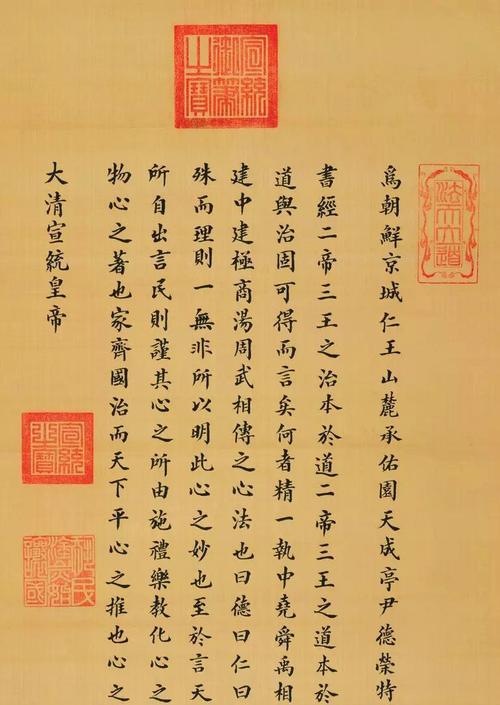 宣統御筆之寶
爲朝鮮京城仁王山麓承佑園天成亭尹德榮特
書經二帝三王之治本於道二帝三王之道本於
道與治固可得而言矣何者精一執中堯舜禹相
建中建極商湯周武相傳之心法也曰德曰仁曰
殊而理則一無非所以明此心之妙也至於言天
所自出言民則謹其心之所由施禮樂教化心之
物心之著也家齊國治而天下平心之推也心之
大清宣統皇帝
宣統之寶